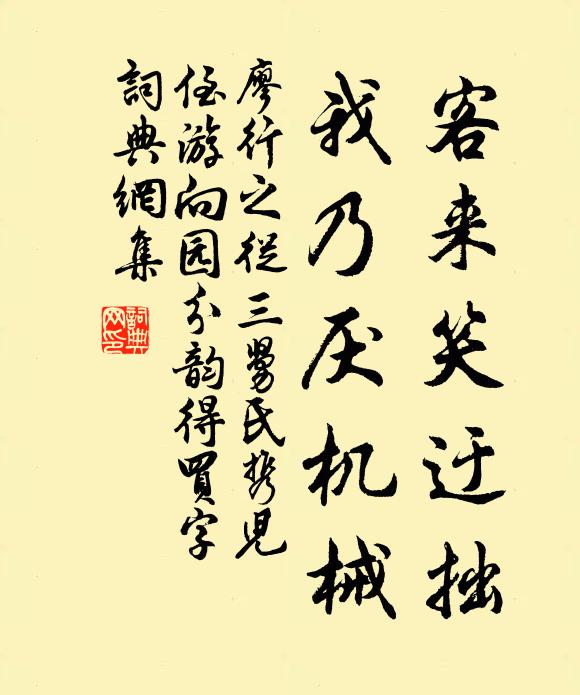 客来笑迂拙
我乃厌机械
廖行之從三舅氏携兒
侄游向园分韵得買字
詞典網集
詞典网印